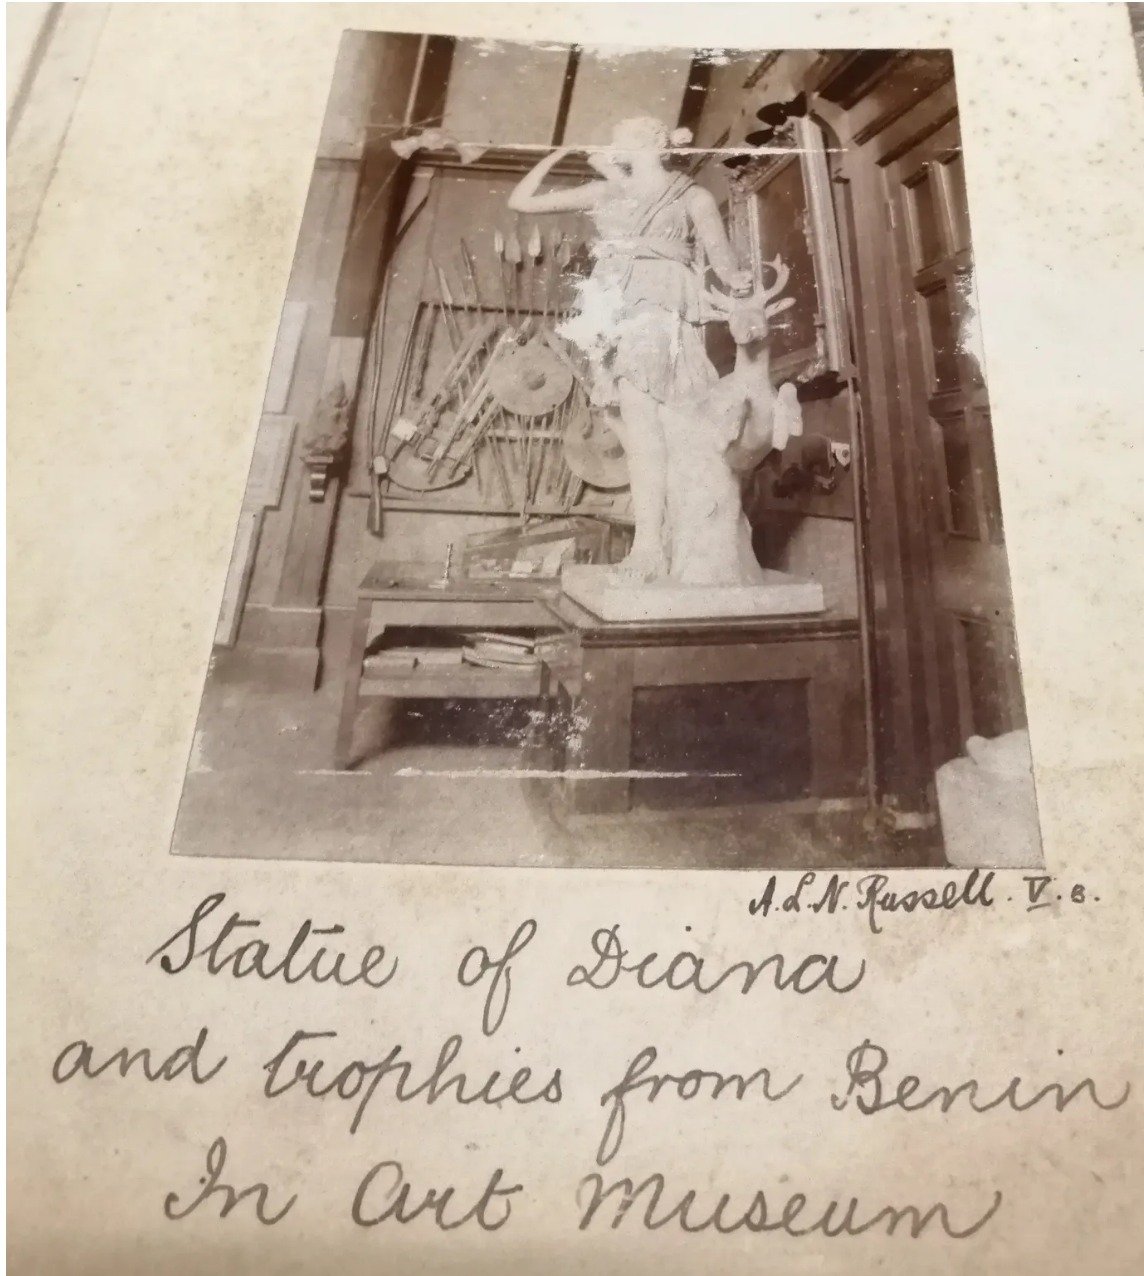 A.L.N. Russell. V. B.
Statue of Diana
and trophies from Benin
In Art Museum